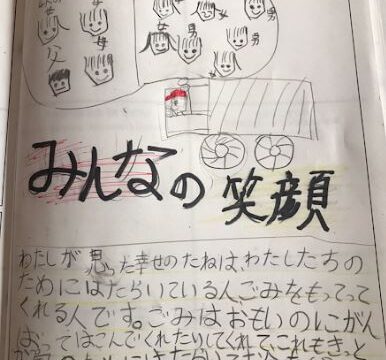 女
母
女
男
男
父
母
女
男
女
みんなの笑顔
わたしが思った幸せのたねは、わたしたちの
ためにはたらいている人、ごみをもってって
くれる人です。ごみはおもいのにがん
ばってはこんでくれたいしてくれて、これもきっと